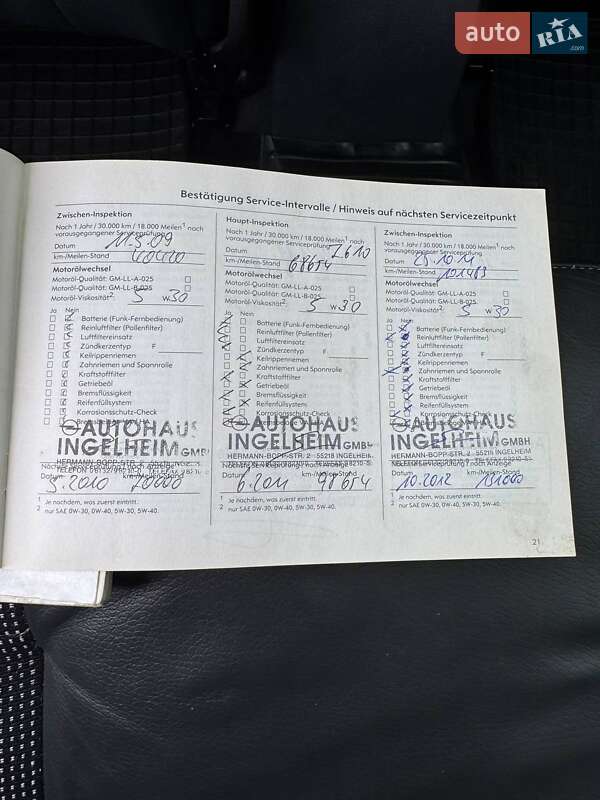 auto RIA .com
Bestätigung Service-Intervalle / Hinweis auf nächsten Servicezeitpunkt
Zwischen-Inspektion
Nach 1 Jahr / 30.000 km / 18.000 Meilen¹ nach
vorausgegangener Serviceprüfung
Datum 11.5.09
km-/Meilen-Stand
Motorölwechsel
Motoröl-Qualität: GM-LL-A-025
GM-LL-B-025
Motoröl-Viskosität²: 5 W 30
Ja Nein
Batterie (Funk-Fernbedienung)
Reinluftfilter (Pollenfilter)
Luftfiltereinsatz
Zündkerzentyp F
Keilrippenriemen
Zahnriemen und Spannrolle
Kraftstofffilter
Getriebeöl
Bremsflüssigkeit
Reifenfüllsystem
Korrosionsschutz-Check
AUTOHAUS
INGELHEIM GMBH
HERMANN-BOPP-STR.
Datum km-/Meilen-Stand
5.2010 70000
¹ Je nachdem, was zuerst eintritt.
² nur SAE 0W-30, 0W-40, 5W-30, 5W-40.
Haupt-Inspektion
Nach 1 Jahr / 30.000 km / 18.000 Meilen¹ nach
vorausgegangener Serviceprüfung
Datum 7.6.10
km-/Meilen-Stand 68654
Motorölwechsel
Motoröl-Qualität: GM-LL-A-025
GM-LL-B-025
Motoröl-Viskosität²: 5 W 30
Ja Nein
Batterie (Funk-Fernbedienung)
Reinluftfilter (Pollenfilter)
Luftfiltereinsatz
Zündkerzentyp F
Keilrippenriemen
Zahnriemen und Spannrolle
Kraftstofffilter
Getriebeöl
Bremsflüssigkeit
Reifenfüllsystem
Korrosionsschutz-Check
AUTOHAUS
INGELHEIM GMBH
HERMANN-BOPP-STR. 2 - 55218 INGELHEIM
Datum km-/Meilen-Stand
6.2011 98654
¹ Je nachdem, was zuerst eintritt.
² nur SAE 0W-30, 0W-40, 5W-30, 5W-40.
Zwischen-Inspektion
Nach 1 Jahr / 30.000 km / 18.000 Meilen¹ nach
vorausgegangener Serviceprüfung
Datum 25.10.11
km-/Meilen-Stand 101483
Motorölwechsel
Motoröl-Qualität: GM-LL-A-025
GM-LL-B-025
Motoröl-Viskosität²: 5 W 30
Ja Nein
Batterie (Funk-Fernbedienung)
Reinluftfilter (Pollenfilter)
Luftfiltereinsatz
Zündkerzentyp F
Keilrippenriemen
Zahnriemen und Spannrolle
Kraftstofffilter
Getriebeöl
Bremsflüssigkeit
Reifenfüllsystem
Korrosionsschutz-Check
AUTOHAUS
INGELHEIM GMBH
HERMANN-BOPP-STR. 2 - 55218 INGELHEIM
Datum km-/Meilen-Stand
10.2012
¹ Je nachdem, was zuerst eintritt.
² nur SAE 0W-30, 0W-40, 5W-30, 5W-40.
21